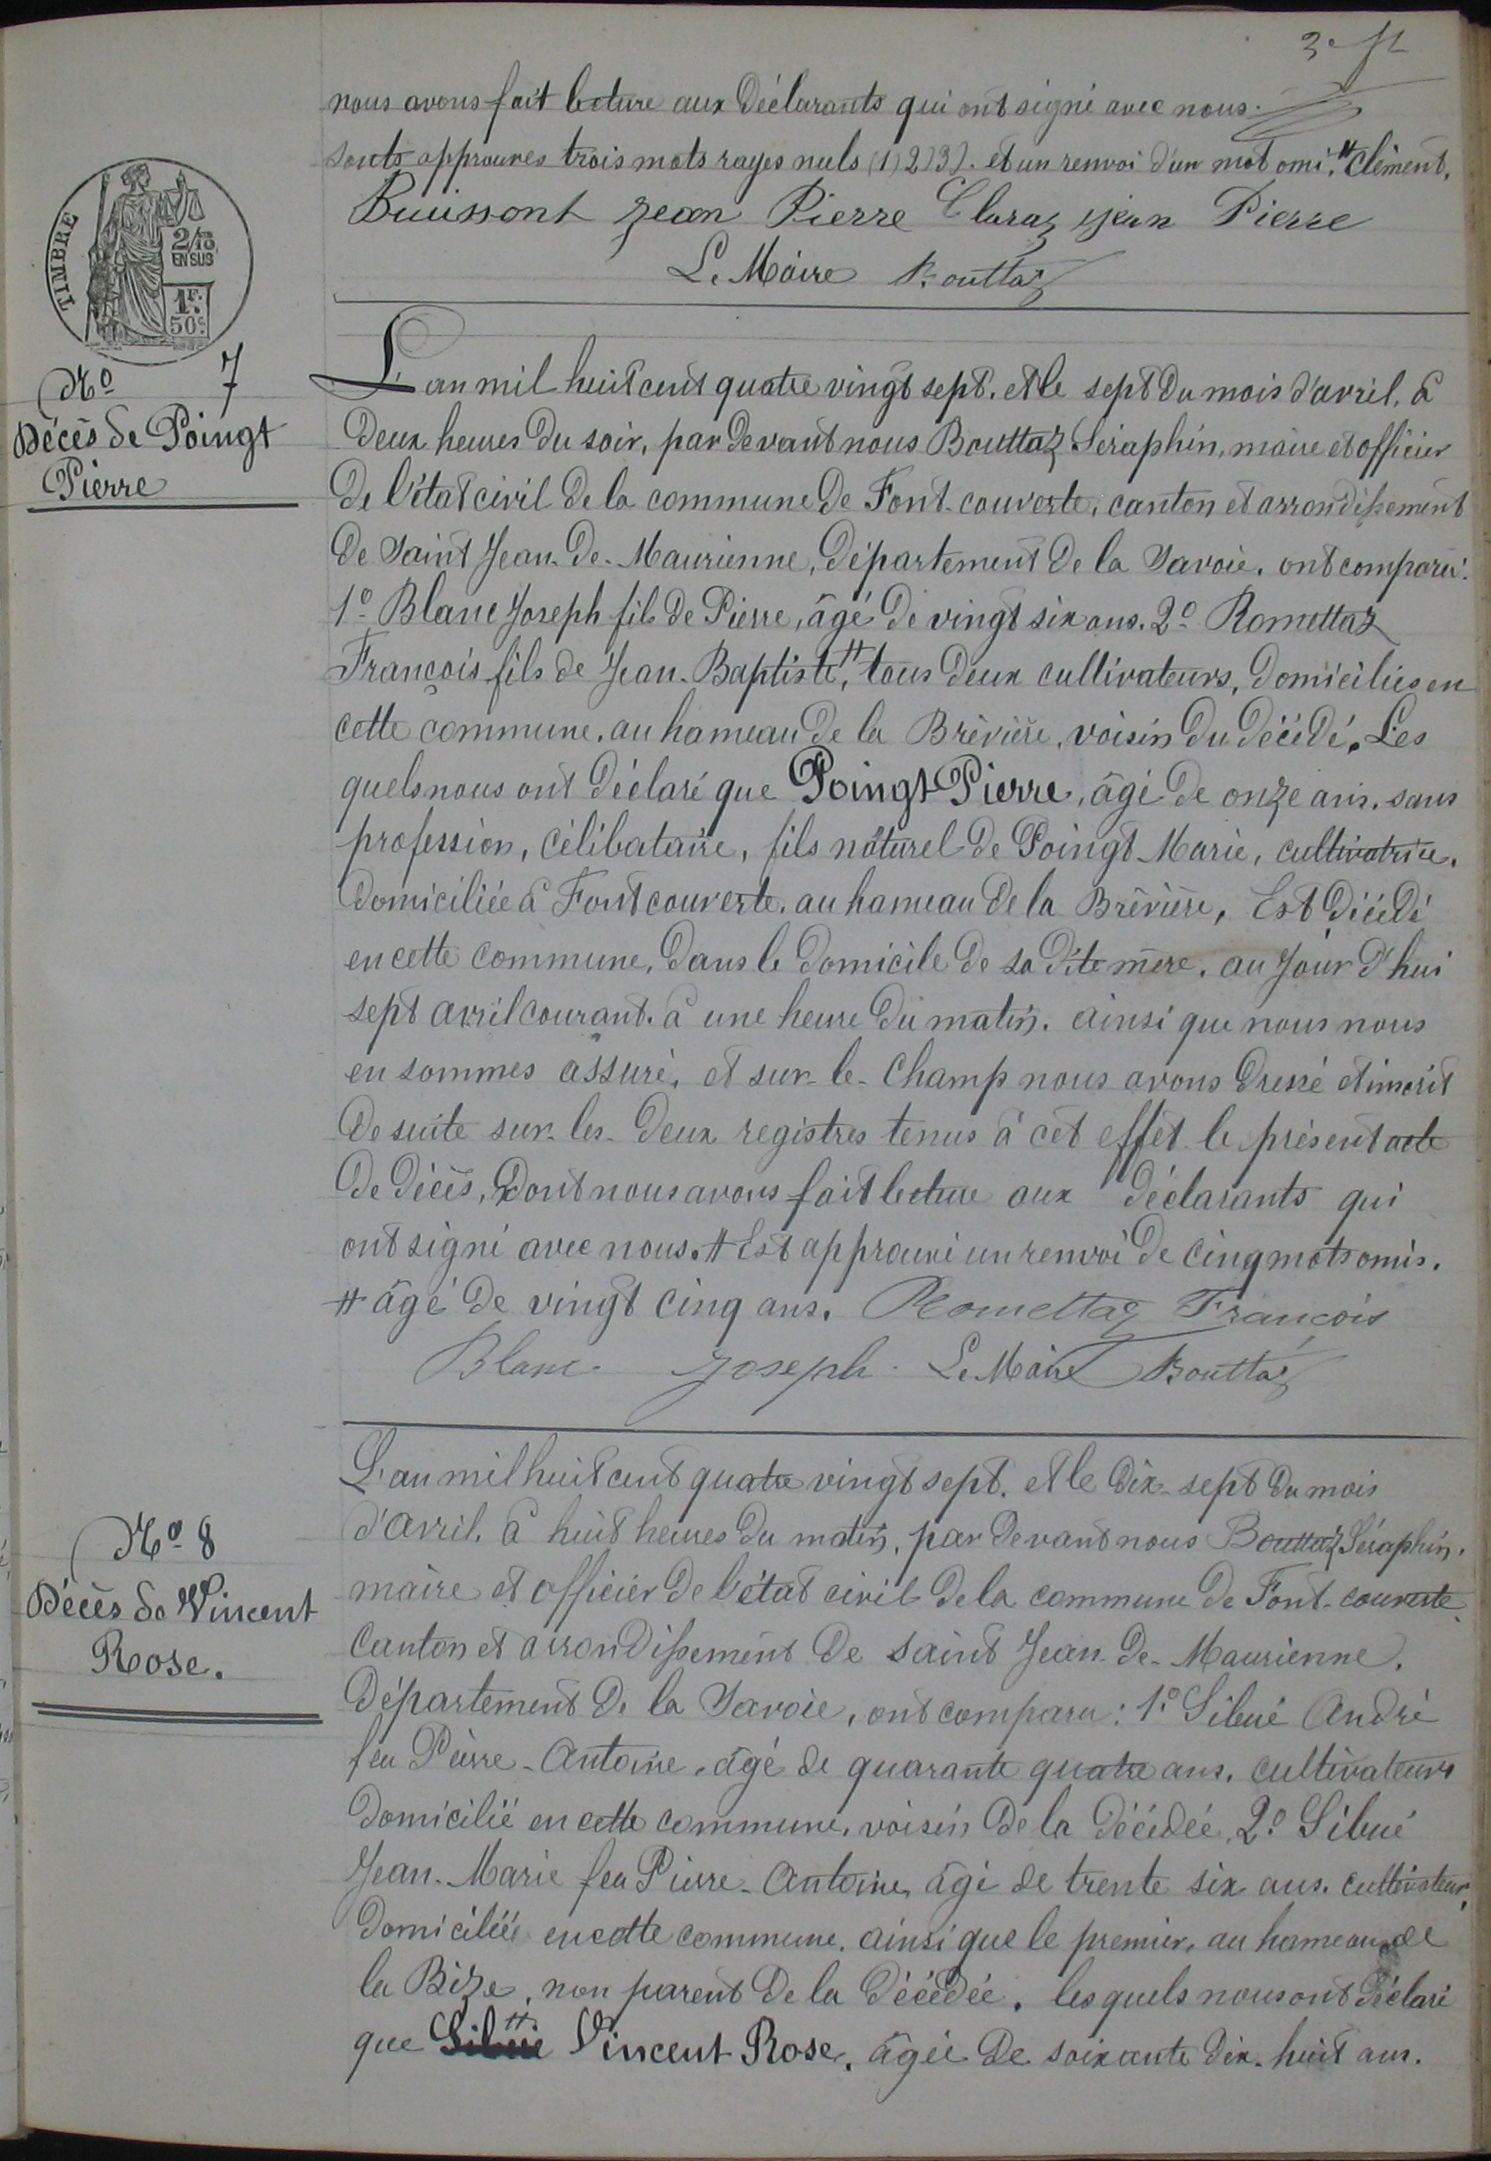 3e f
nous avons fait lecture aux déclarants qui ont signé avec nous.
sonts approuvés trois mots rayés nuls (1) 2) 3). et un renvoi d'un mot omi. # Clément.
Buissont Jean Pierre Claraz jean Pierre
Le Maire Bouttaz
TIMBRE
2/10
EN SUS
1 F.
50 c.
No 7
Décès de Poingt
Pierre
L'an mil huit cent quatre vingt sept. et le sept du mois d'avril, à
deux heures du soir, par devant nous Bouttaz Séraphin, maire et officier
de l'état civil de la commune de Font-couverte, canton et arrondissement
de Saint Jean-de-Maurienne, département de la Savoie. ont comparu:
1o Blanc Joseph fils de Pierre, âgé de vingt six ans. 2o Romettaz
François fils de Jean-Baptiste, # tous deux cultivateurs, domiciliés en
cette commune. au hameau de la Brévière, voisin du décédé. Les
quels nous ont déclaré que Poingt Pierre, âgé de onze ans. sans
profession, célibataire, fils naturel de Poingt Marie, cultivatrice.
domiciliée à Font couverte. au hameau de la Brévière, Est décédé
en cette commune, dans le domicile de sa dite mère. au jour d'hui
sept avril courant. à une heure du matin. ainsi que nous nous
en sommes assuré, et sur-le-champ nous avons dressé et inscrit
de suite sur-les-deux registres tenus à cet effet le présent acte
de décès, dont nous avons fait lecture aux déclarants qui
ont signé avec nous. # Est approuvé un renvoi de cinq mots omis.
# âgé de vingt cinq ans. Romettaz François
Blanc Joseph Le Maire Bouttaz
No 8
Décès de Vincent
Rose.
L'an mil huit cent quatre vingt sept. et le dix-sept du mois
d'avril. à huit heures du matin, par devant nous Bouttaz Séraphin.
maire et officier de l'état civil de la commune de Font-couverte
canton et arrondissement de Saint Jean-de-Maurienne.
département de la Savoie, ont comparu: 1o Sibué André
feu Pierre-Antoine. âgé de quarante quatre ans. cultivateurs
domicilié en cette commune. voisin de la décédée, 2o Sibué
Jean-Marie feu Pierre-Antoine, âgé de trente six ans. cultivateur,
domiciliée en cette commune. ainsi que le premier, au hameau de
la Bize, non parent de la décédée. les quels nous ont déclaré
que Sibué # Vincent Rose, âgée de soixante dix-huit ans.